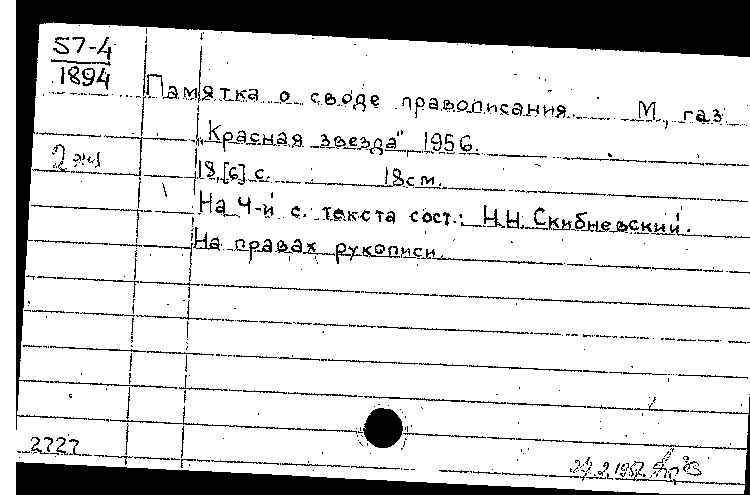 57-4
1894
Памятка о своде правописания. М., газ.
„Красная звезда", 1956.
2 экз
18,[6] с. 18см.
На 4-й с. текста сост.: Н.Н. Скибневский.
На правах рукописи.
2727
27.2.1957.